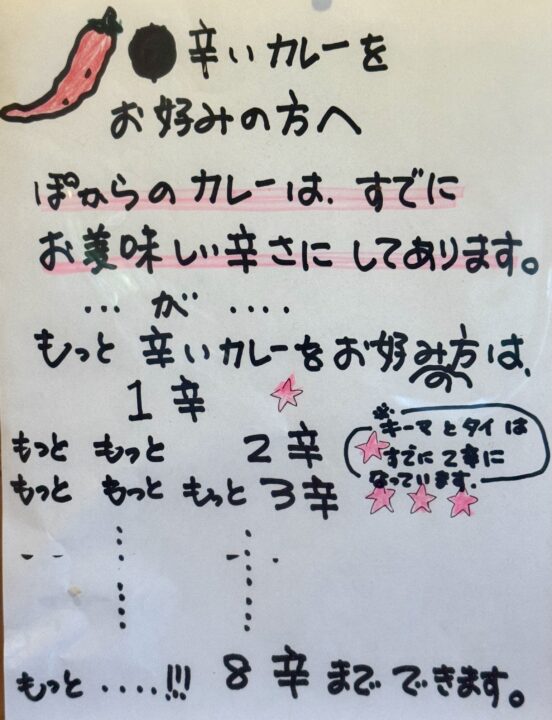 辛いカレーを
お好みの方へ
ぽからのカレーは、すでに
お美味しい辛さにしてあります。
…が‥‥
もっと辛いカレーをお好みの方は、
1辛
もっと もっと 2辛
もっと もっと もっと 3辛
※キーマとタイは
すでに2辛に
なっています。
もっと ‥‥!!! 8辛までできます。